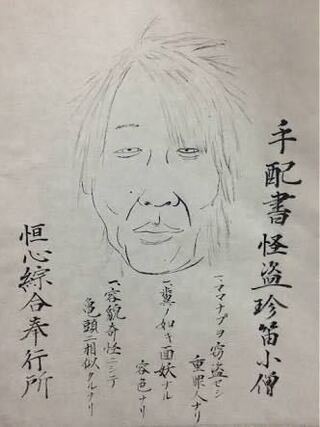 手配書怪盗珍笛小僧
一、ママナプヲ窃盗セシ
重罪人ナリ
一、糞ノ如キ面妖ナル
容色ナリ
一、容貌奇怪ニシテ
亀頭ニ相似タルナリ
恒心綜合奉行所